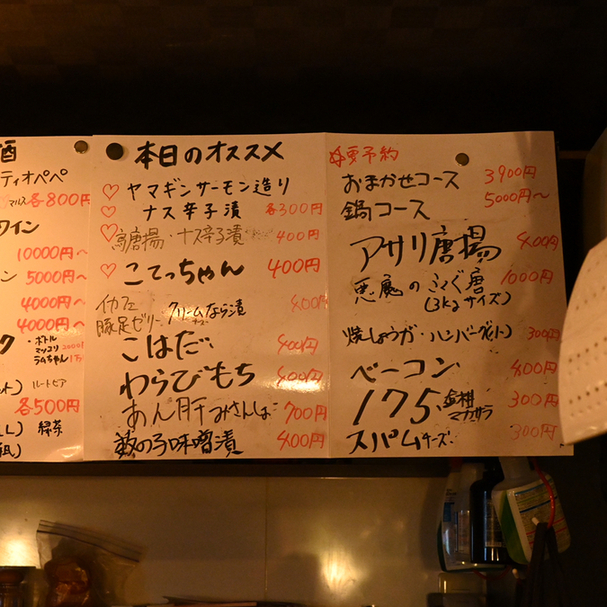 酒
ティオペペ
マルス 各800円
ワイン
10000円~
ン 5000円~
4000円~
4000円~
ク ・ボトル
マッコリ
ラムちゃん
ット) ルートビア
各500円
LL) 緑茶
瓶)
本日のオススメ
♡ ヤマギシサーモン造り
♡ ナス辛子漬 各300円
♡ 唐揚・ナス辛子漬 400円
♡ こてっちゃん 400円
イカフェ
豚足ゼリー クリームなら漬 チーズ 400円
こはだ 400円
わらびもち 400円
あん肝 みさんしょ 700円
数の子味噌漬 400円
☆要予約
おまかせコース 3900円
鍋コース 5000円~
アサリ唐揚 400円
悪魔の ふぐ唐 1000円
(3kgサイズ)
焼しょうが・ハンバーグ(ト) 300円
ベーコン 400円
175° 300円
スパムチーズ 300円